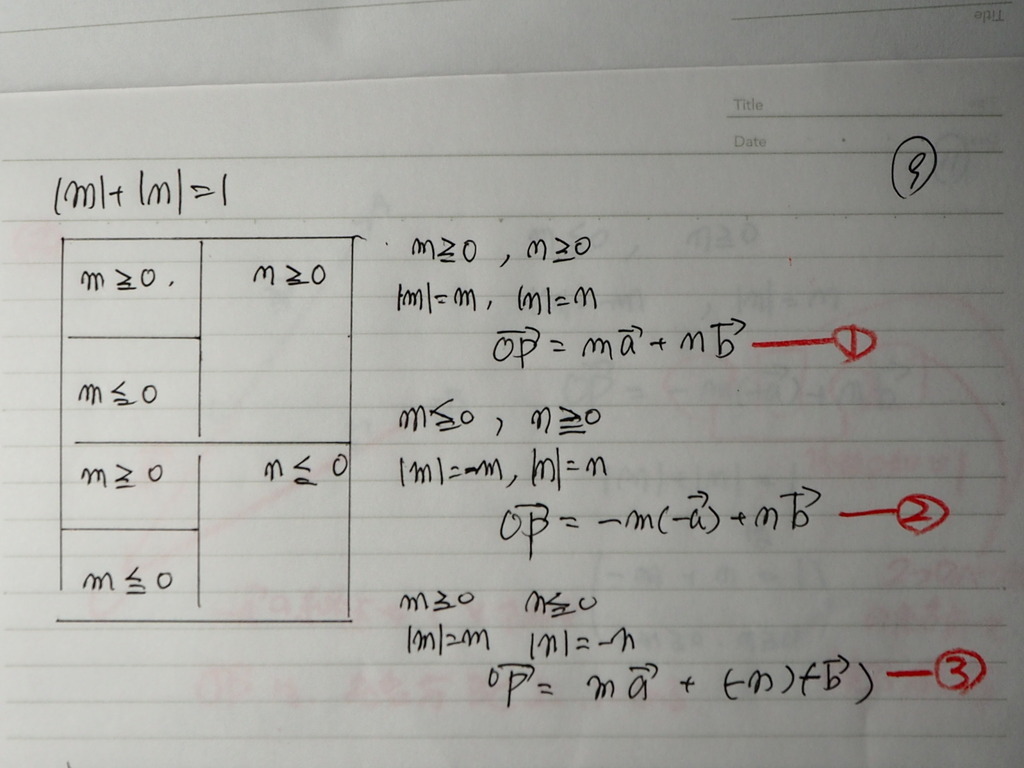 Title
Title
Date
9
|m|+|n|=1
m≧0, n≧0
m≦0
m≧0 n≦0
m≦0
m≧0, n≧0
|m|=m, |n|=n
OP→ = ma→ + nb→ ①
m≦0, n≧0
|m|=-m, |n|=n
OP→ = -m(-a→) + nb→ ②
m≧0 n≦0
|m|=m |n|=-n
OP→ = ma→ + (-n)(-b→) ③